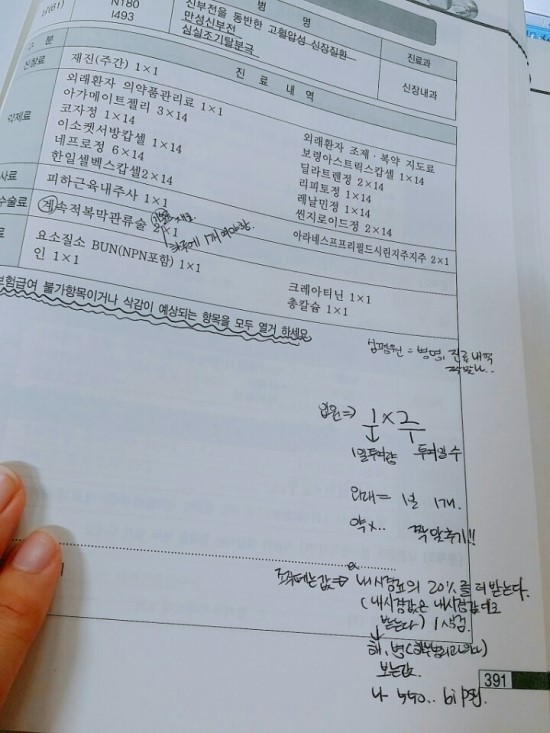 병 명
진료과
N180
I493
신부전을 동반한 고혈압성 신장질환
만성신부전
심실조기탈분극
신장내과
구 분
진 료 내 역
재진(주간) 1×1
외래환자 의약품관리료 1×1
아가메이트젤리 3×14
코자정 1×14
이소켓서방캅셀 1×14
네프로정 6×14
한일셀벡스캅셀2×14
외래환자 조제·복약 지도료
보령아스트릭스캅셀 1×14
딜라트렌정 2×14
리피토정 1×14
레날민정 1×14
씬지로이드정 2×14
피하근육내주사 1×1
아라네스프프리필드시린지주 2×1
수술료
계속적복막관류술 2×1
요소질소 BUN(NPN포함) 1×1
인 1×1
크레아티닌 1×1
총칼슘 1×1
보험급여 불가항목이거나 삭감이 예상되는 항목을 모두 열거 하세요
심평원 = 병명, 진료내역
입원 ⇒ 1 × 2
1 1
1일투여량 투여일수
외래 = 1일 1개.
약x.. 짝맞추기!!
내시경료의 20%를 더 받는다.
(내시경값은 내시경값대로
받는다) 1 생검
보는값
391